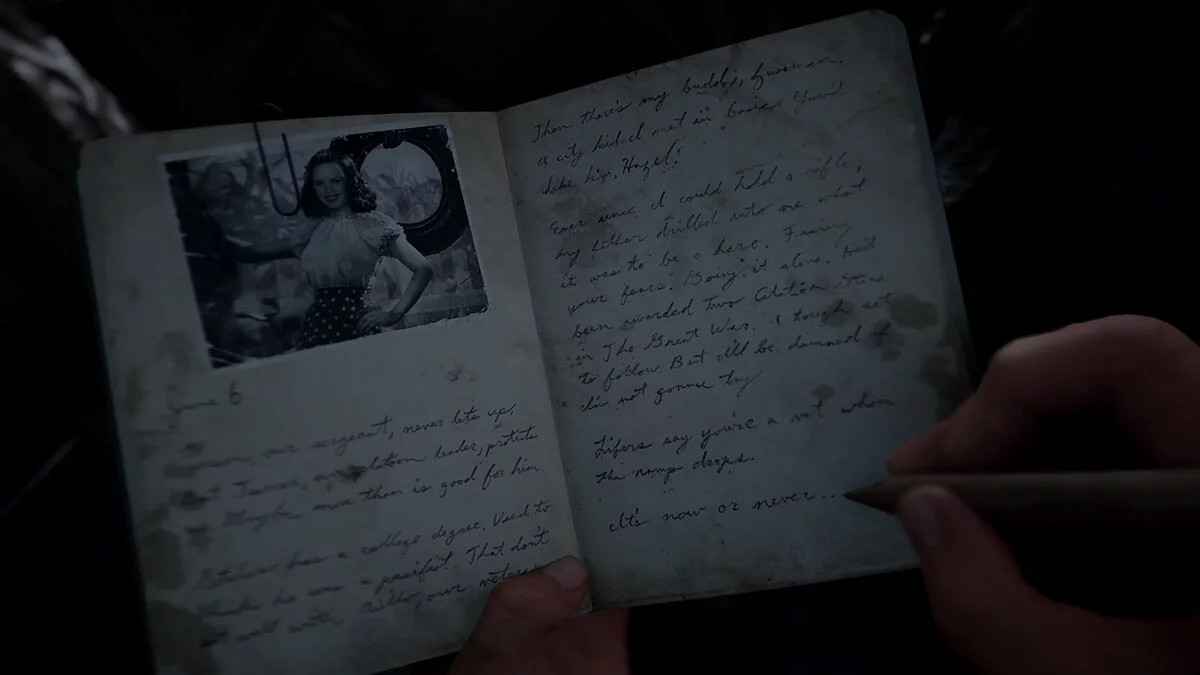 June 6
our sergeant, never lets up.
Turner, our platoon leader, protects
us. Maybe more than is good for him.
has a college degree. Used to
think he was a pacifist. That don't
sit well with Aiello, our veteran
Then there's my buddy, Zussman,
a city kid I met in basic. You'd
like him, Hazel!
Ever since I could hold a rifle,
my father drilled into me what
it was to be a hero. Facing
your fears. Going it alone. He'd
been awarded two Citation Stars
in The Great War. A tough act
to follow. But I'll be damned if
I'm not gonna try
Lifers say you're a vet when
the ramp drops.
It's now or never...